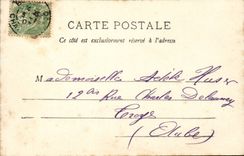 CARTE POSTALE
Ce côté est exclusivement réservé à l'adresse
Mademoiselle
12 Rue Charles Delaunay
Troyes
(Aube)